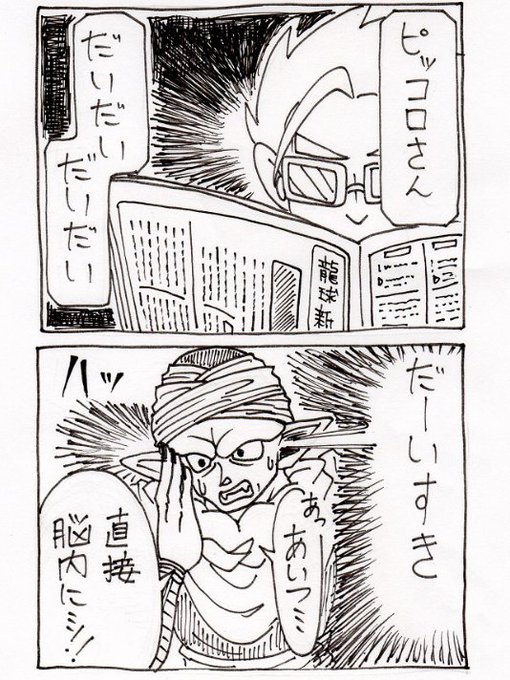 ピッコロさん
だいだい
だいだい
龍球新
だーいすき
ハッ
あっ
あいつ…
直接
脳内にッ!!